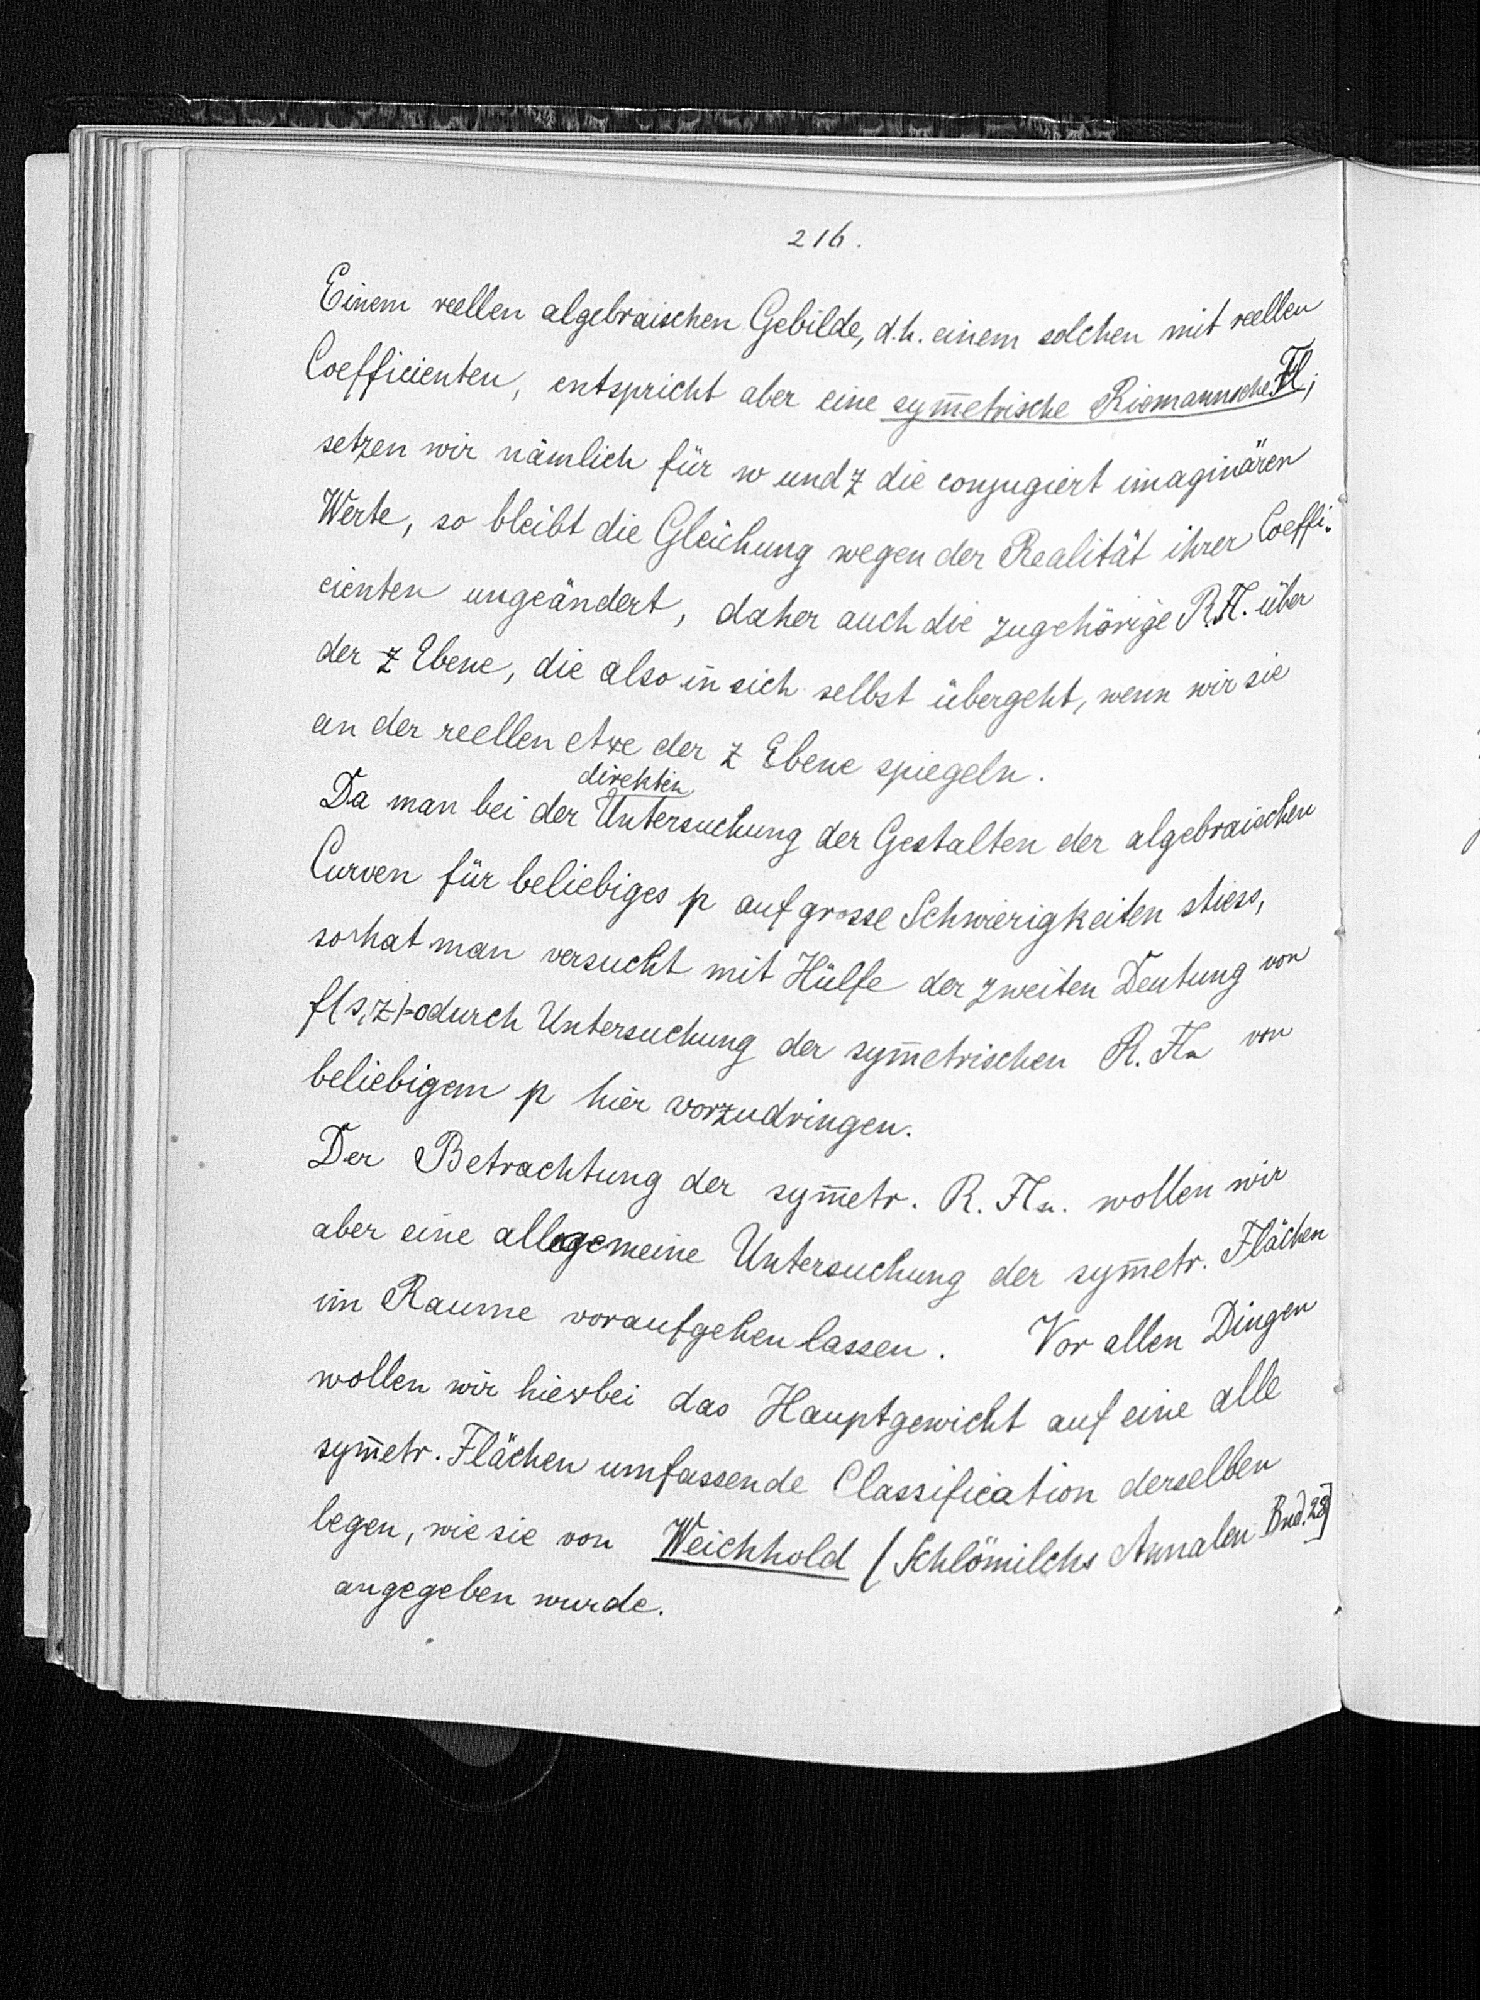 216.
Einem reellen algebraischen Gebilde, d.h. einem solchen mit reellen
Coefficienten, entspricht aber eine sym̅etrische Riemannsche Fl;
setzen wir nämlich für w und z die conjugiert imaginären
Werte, so bleibt die Gleichung wegen der Realität ihrer Coeffi-
cienten ungeändert, daher auch die zugehörige R.Fl. über
der z Ebene, die also in sich selbst übergeht, wenn wir sie
an der reellen Axe der z Ebene spiegeln.
direkten
Da man bei der Untersuchung der Gestalten der algebraischen
Curven für beliebiges p auf grosse Schwierigkeiten stiess,
so hat man versucht mit Hülfe der zweiten Deutung von
f(s,z)=0 durch Untersuchung der sym̅etrischen R. Fln von
beliebigem p hier vorzudringen.
Der Betrachtung der sym̅etr. R. Fln. wollen wir
aber eine allgemeine Untersuchung der sym̅etr. Flächen
im Raume voraufgehen lassen. Vor allen Dingen
wollen wir hierbei das Hauptgewicht auf eine alle
sym̅etr. Flächen umfassende Classification derselben
legen, wie sie von Weichhold (Schlömilchs Annalen Bnd. 28)
angegeben wurde.